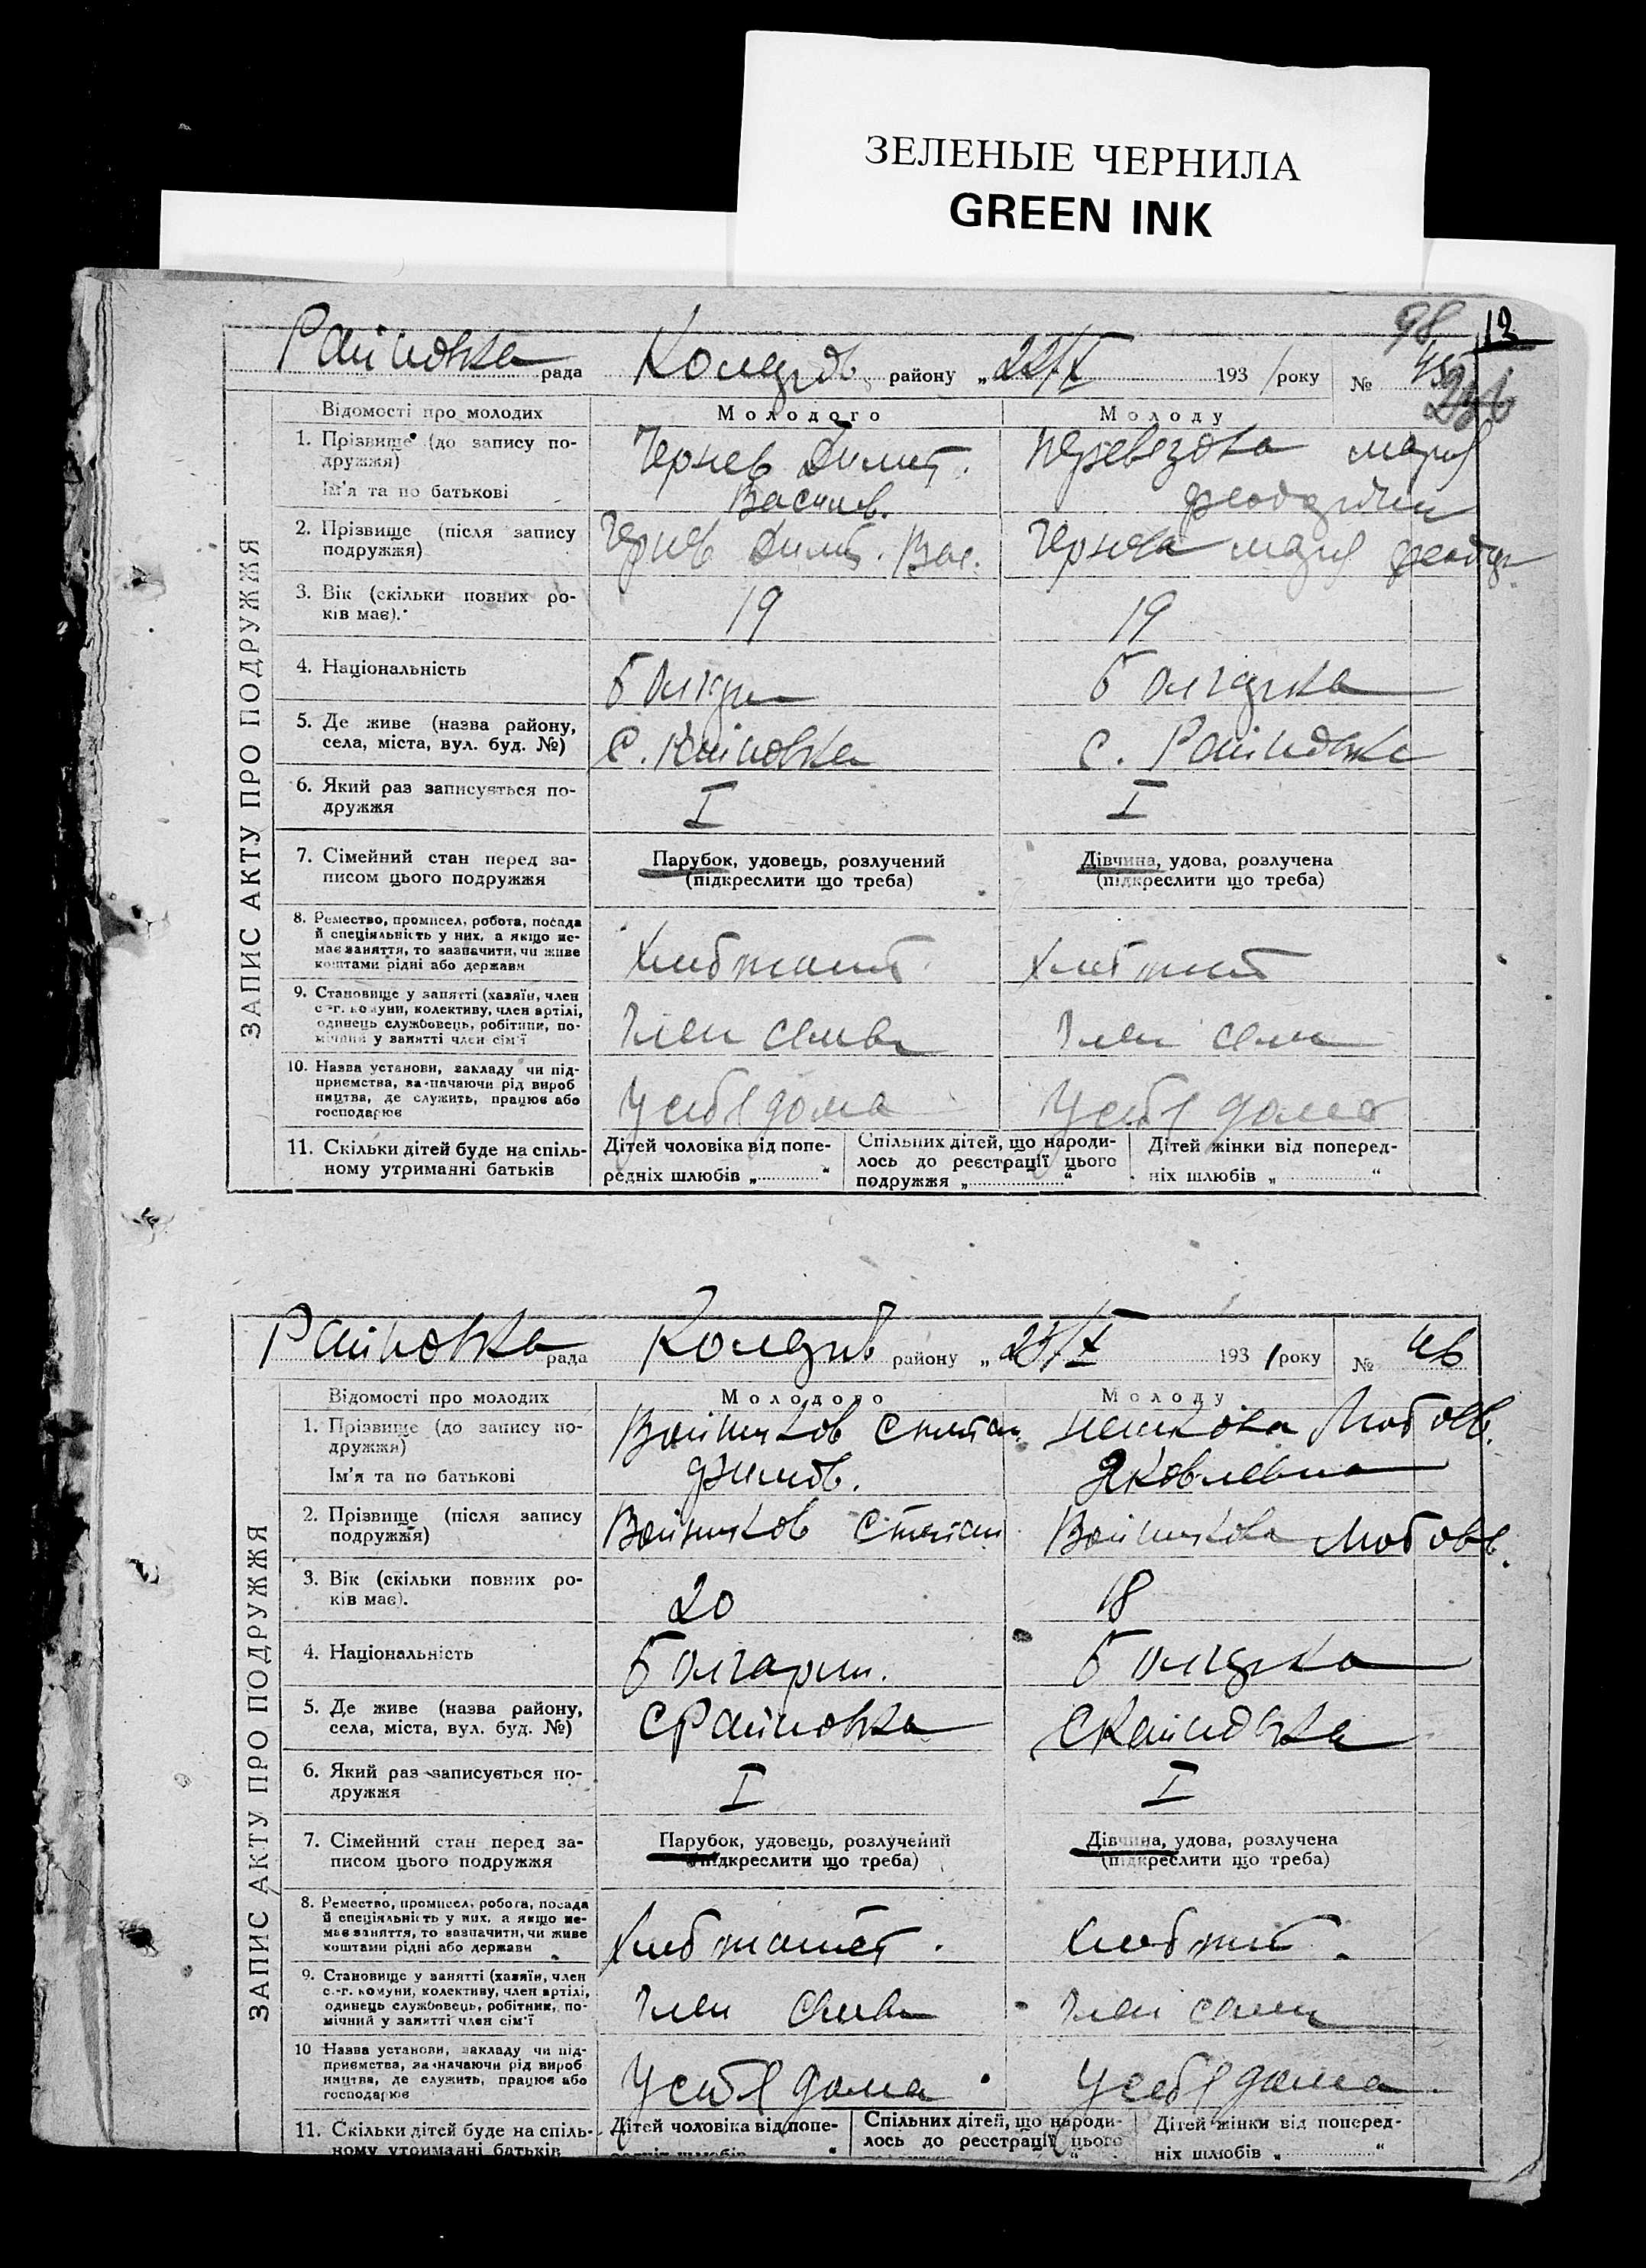 ЗЕЛЕНЫЕ ЧЕРНИЛА
GREEN INK
98 12
Райновка рада району „22/X 193 1 року № 45
Відомості про молодих Молодого Молоду
1. Прізвище (до запису по-
дружжя)
Ім'я та по батькові
Чернев Димит.
Васильев.
Перевезова
2. Прізвище (після запису
подружжя)
Чернев Димит. Вас.
Чернева
3. Вік (скільки повних ро-
ків має).
19 19
4. Національність
болгарин болгарка
5. Де живе (назва району,
села, міста, вул. буд. №)
С. Райновка С. Райновка
6. Який раз записується по-
дружжя
I I
7. Сімейний стан перед за-
писом цього подружжя
Парубок, удовець, розлучений
(підкреслити що треба)
Дівчина, удова, розлучена
(підкреслити що треба)
8. Ремество, промисел, робота, посада
й спеціяльність у них, а якщо не-
має заняття, то зазначити, чи живе
коштами рідні або держави
9. Становище у занятті (хазяїн, член
с.-г. комуни, колективу, член артілі,
одинець службовець, робітник, по-
мічний у занятті член сім'ї
Член семьи Член семьи
10. Назва установи, закладу чи під-
приємства, зазначаючи рід вироб
ництва, де служить, працює або
господарює
У себя дома У себя дома
11. Скільки дітей буде на спіль-
ному утриманні батьків
Дітей чоловіка від попе-
редніх шлюбів „ “
Спільних дітей, що народи-
лось до реєстрації цього
подружжя „ “
Дітей жінки від поперед-
ніх шлюбів „ “
ЗАПИС АКТУ ПРО ПОДРУЖЖЯ
Райновка рада району „25/X 193 1 року № 46
Відомості про молодих Молодого Молоду
1. Прізвище (до запису по-
дружжя)
Ім'я та по батькові
Войников Степан
Ненкова Любовь.
Яковлевна
2. Прізвище (після запису
подружжя)
Войников Степан Войникова Любовь.
3. Вік (скільки повних ро-
ків має).
20 18
4. Національність
болгарин. болгарка
5. Де живе (назва району,
села, міста, вул. буд. №)
С Райновка С Райновка
6. Який раз записується по-
дружжя
I I
7. Сімейний стан перед за-
писом цього подружжя
Парубок, удовець, розлучений
(підкреслити що треба)
Дівчина, удова, розлучена
(підкреслити що треба)
8. Ремество, промисел, робота, посада
й спеціяльність у них, а якщо не-
має заняття, то зазначити, чи живе
коштами рідні або держави
9. Становище у занятті (хазяїн, член
с.-г. комуни, колективу, член артілі,
одинець службовець, робітник, по-
мічний у занятті член сім'ї
Член семьи Член семьи
10 Назва установи, закладу чи під-
приємства, зазначаючи рід вироб
ництва, де служить, працює або
господарює
У себя дома У себя дома
11. Скільки дітей буде на спіль-
ному утриманні батьків
Дітей чоловіка від попе-
редніх шлюбів “
Спільних дітей, що народи-
лось до реєстрації цього
Дітей жінки від поперед-
ніх шлюбів „ “
ЗАПИС АКТУ ПРО ПОДРУЖЖЯ